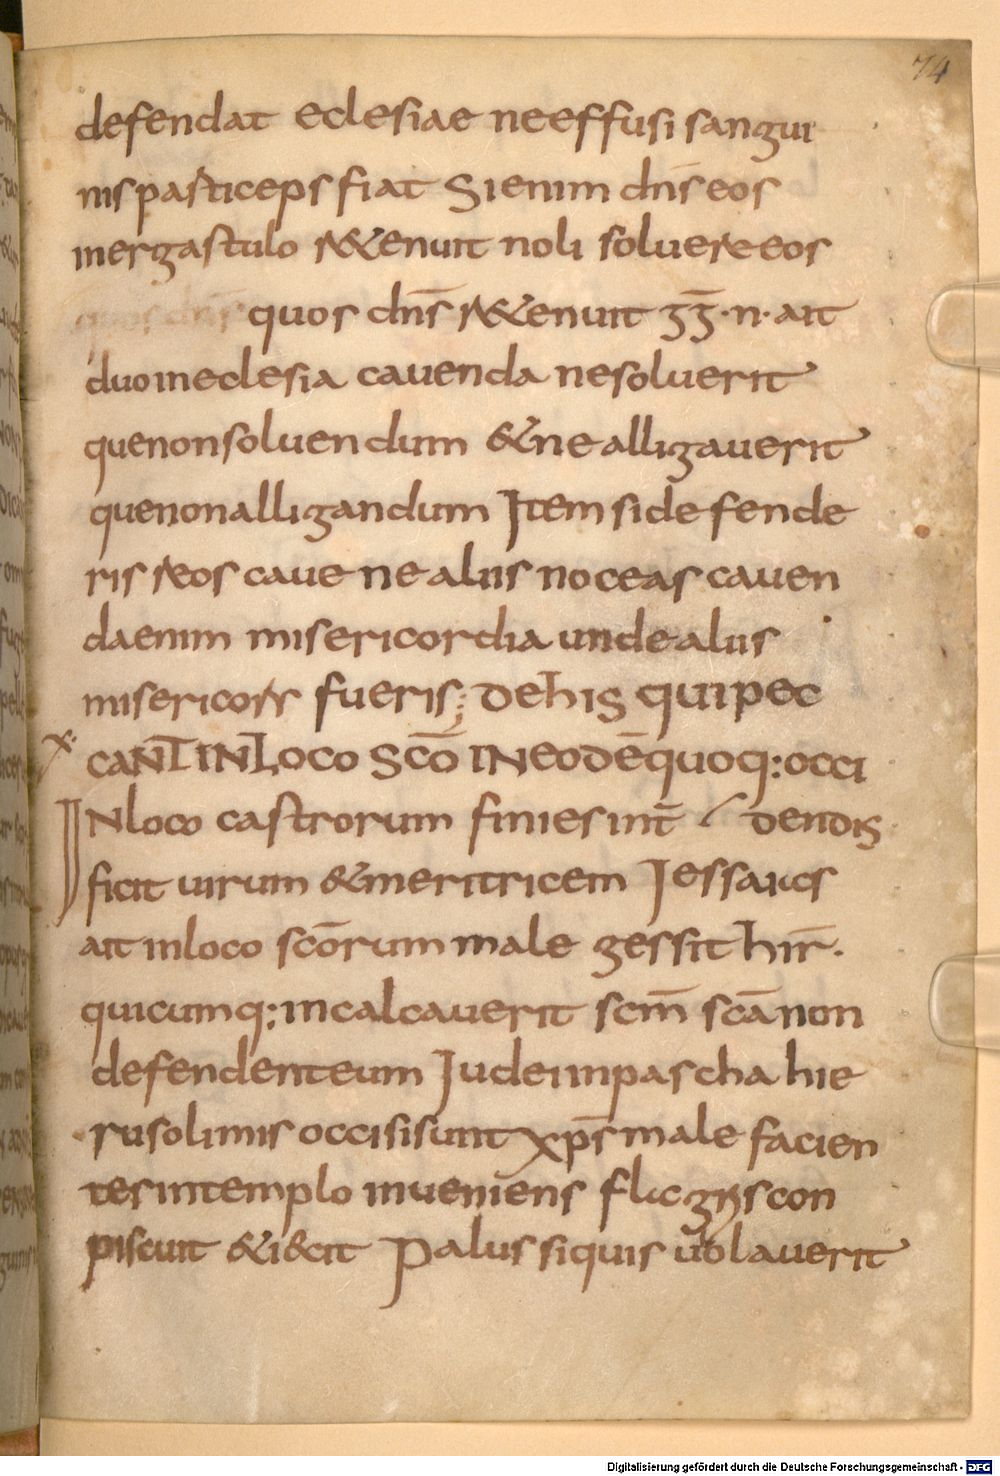 74
defendat eclesiae neeffusi sangui
nis particeps fiat Sienim dn̄s eos
inergastulo r&enuit noli soluereeos
quos dn̄s quos dn̄s r&enuit gḡ·n·ait
duoineclesia cauenda nesoluerit
quenonsoluendum &nealligauerit
quenonalligandum Item sidefende
ris reos caue nealiis noceas cauen
daenim misericordia undealiis
misericors fueris; dehis qui pec
x·
caNT INLoco Sc̄o INeodēquoq:occi
INloco castrorum finies int̄ / dendis
ficit uirum &meritricem Iessaias
ait inloco sc̄orum male gessit hir̄·
quicumq; incalcauerit scm̄ scā non
defendenteum Iudei inpascha hie
rusolimis occisisunt xp̄s male facien
tes intemplo inueniens
piscuit &i&cit Palus siquis uiolauerit
Digitalisierung gefördert durch die Deutsche Forschungsgemeinschaft - DFG